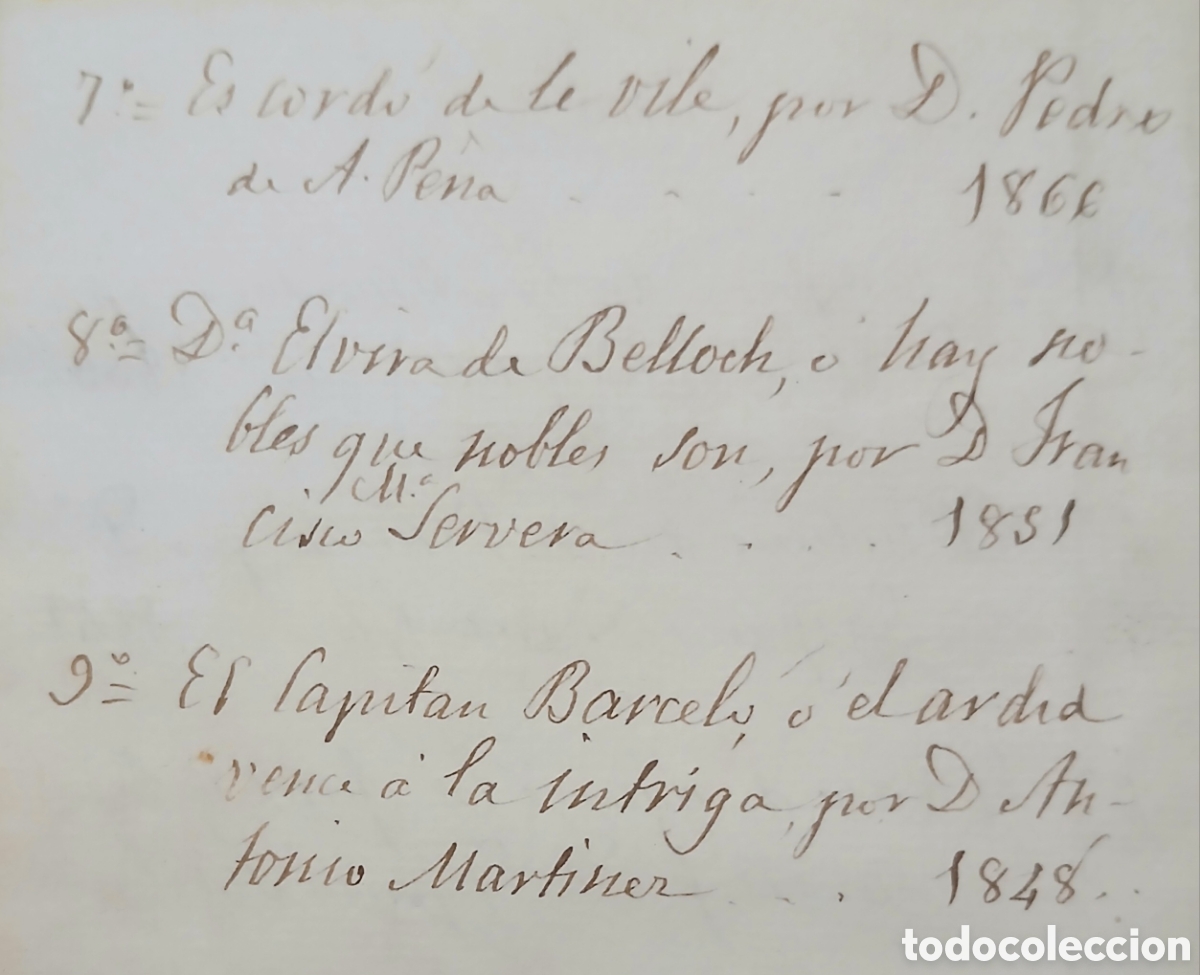 7.º= Es cordó de le vile, por D. Pedro
de A. Peña . . . . 1866
8.ª= D.ª Elvira de Belloch, ó hay no-
bles que nobles son, por D Fran
cisco M.ª Servera . . . . 1851
9.º= El Capitan Barceló, ó el ardid
vence á la intriga, por D An-
tonio Martinez . . . 1848..
todocoleccion